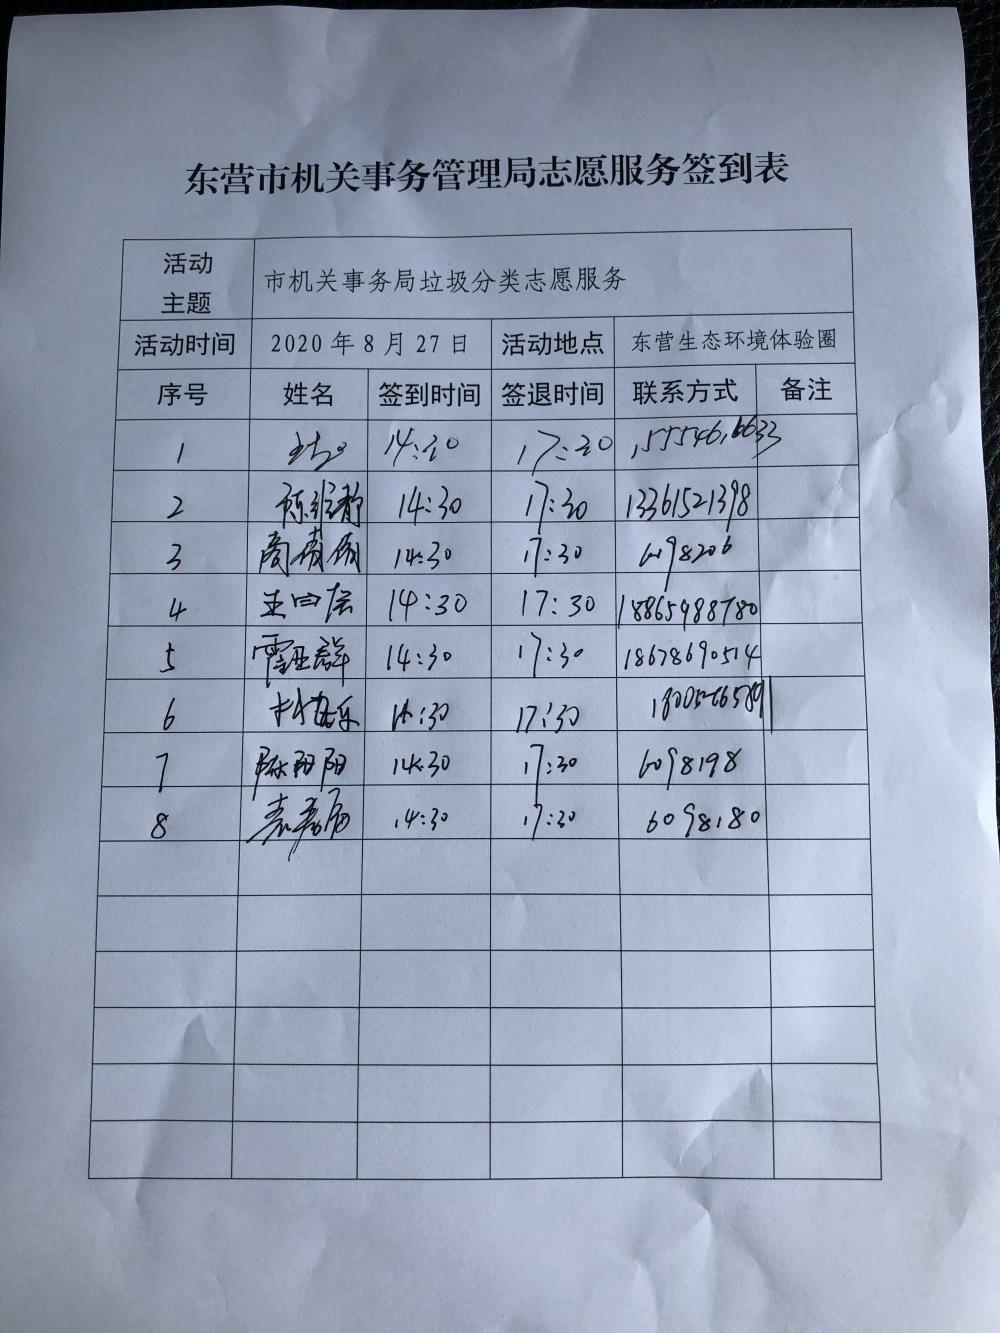 东营市机关事务管理局志愿服务签到表
活动
主题
市机关事务局垃圾分类志愿服务
活动时间 2020年8月27日 活动地点 东营生态环境体验圈
序号 姓名 签到时间 签退时间 联系方式 备注
1 14:30 17:30
2 陈维静 14:30 17:30 13361521398
3 14:30 17:30 6098206
4 14:30 17:30 18865988780
5 霍亚群 14:30 17:30 18678690514
6 14:30 17:30
7 陈阳阳 14:30 17:30 6098198
8 14:30 17:30 6098180